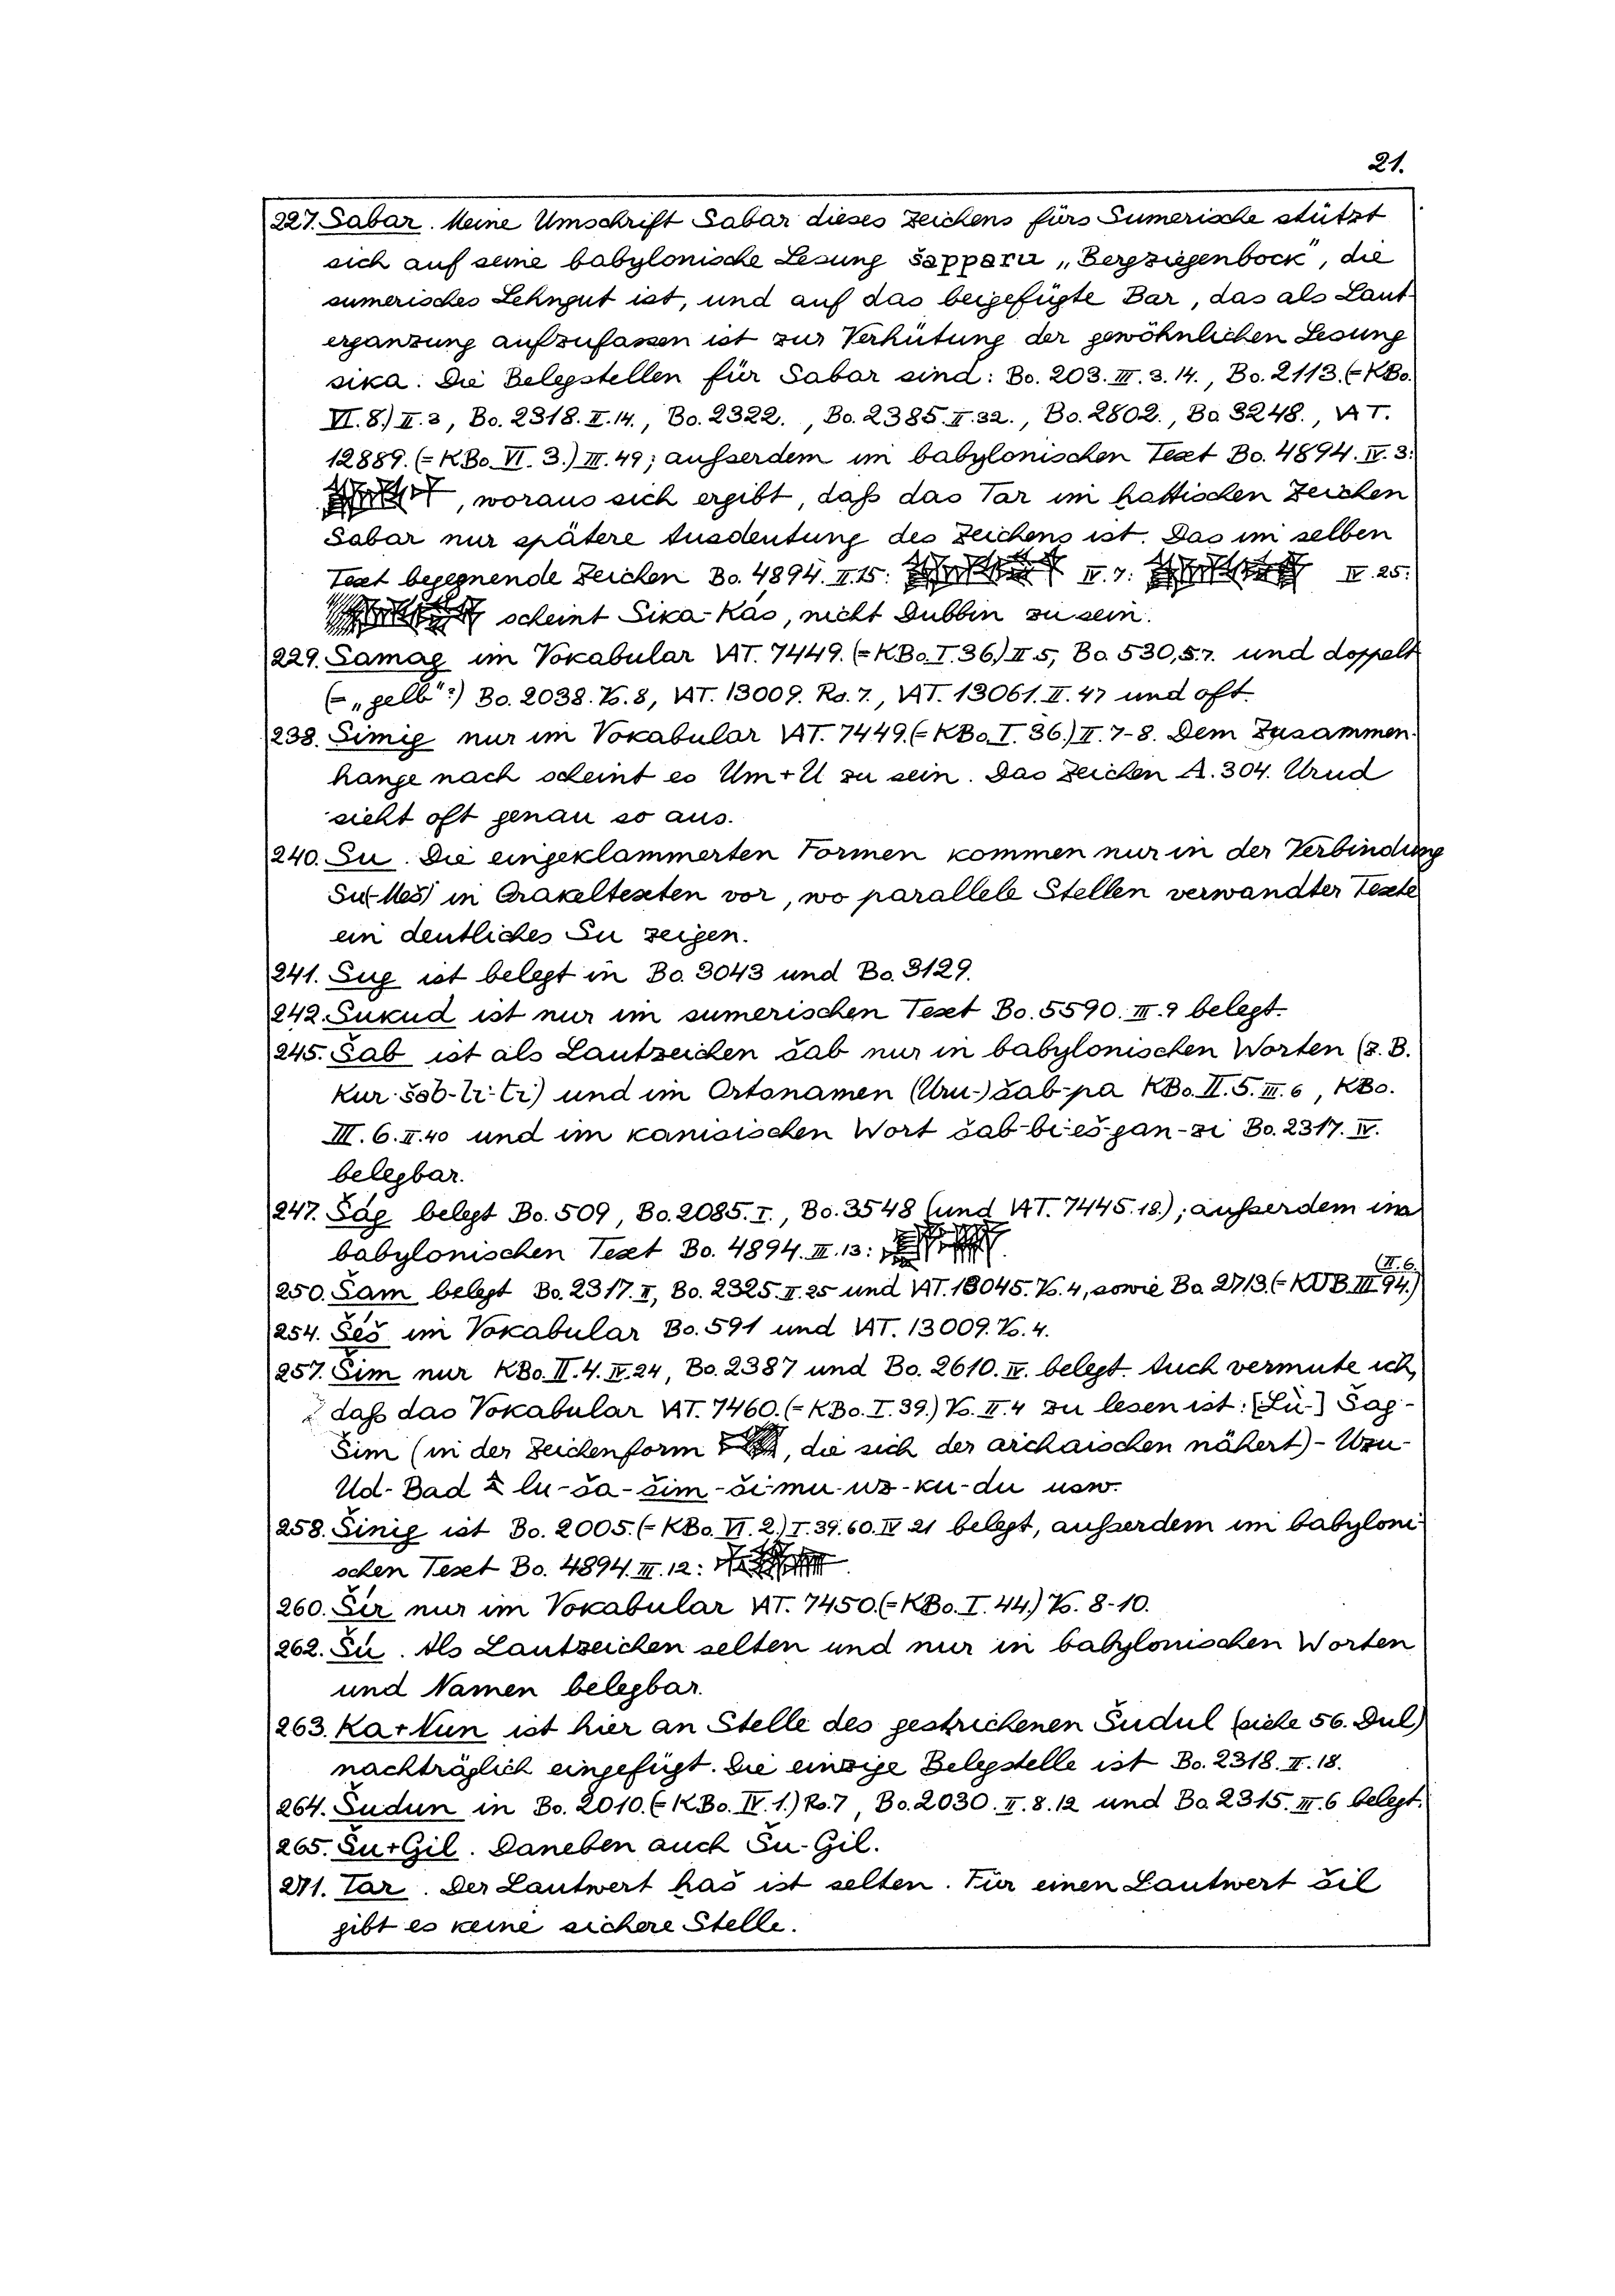 21.
227. Sabar. Meine Umschrift Sabar dieses Zeichens fürs Sumerische stützt
sich auf seine babylonische Lesung šapparu „Bergziegenbock", die
sumerisches Lehngut ist, und auf das beigefügte Bar, das als Laut-
ergänzung aufzufassen ist zur Verhütung der gewöhnlichen Lesung
sika. Die Belegstellen für Sabar sind: Bo. 203. III. 3. 14., Bo. 2113. (= KBo.
VI. 8.) II. 3, Bo. 2318. II. 14., Bo. 2322. , Bo. 2385. II. 32., Bo. 2802., Bo. 3248., VAT.
12889. (= KBo. VI. 3.) III. 49; aufserdem im babylonischen Text Bo. 4894. IV. 3:
, woraus sich ergibt, daß das Tar im hattischen Zeichen
Sabar nur spätere Ausdeutung des Zeichens ist. Das im selben
Text begegnende Zeichen Bo. 4894. II. 15: IV. 7: IV. 25:
scheint Sika-Kás, nicht Dubbin zu sein.
229. Samag im Vokabular VAT. 7449. (= KBo. I. 36.) II 5, Bo. 530, 5.7. und doppelt
(= „gelb"?) Bo. 2038. Vs. 8, VAT. 13009. Rs. 7., VAT. 13061. II. 47 und oft.
238. Simig nur im Vokabular VAT. 7449. (= KBo. I. 36.) II. 7-8. Dem Zusammen-
hange nach scheint es Um+U zu sein. Das Zeichen A. 304. Urud
sieht oft genau so aus.
240. Su. Die eingeklammerten Formen kommen nur in der Verbindung
Su(-Meš) in Orakeltexten vor, wo parallele Stellen verwandter Texte
ein deutliches Su zeigen.
241. Sug ist belegt in Bo. 3043 und Bo. 3129.
242. Sukud ist nur im sumerischen Text Bo. 5590. III. 9 belegt.
245. Šab ist als Lautzeichen šab nur in babylonischen Worten (z. B.
kur-šab-li-ti) und im Ortsnamen (Uru-)šab-pa KBo. II. 5. III. 6, KBo.
III. 6. II. 40 und im kanisischen Wort šab-bi-eš-gan-zi Bo. 2317. IV.
belegbar.
247. Šág belegt Bo. 509, Bo. 2085. I., Bo. 3548 (und VAT. 7445. 18.); aufserdem im
babylonischen Text Bo. 4894. III. 13:
(II. 6.
250. Šam belegt Bo. 2317. II, Bo. 2325. II. 25 und VAT. 13045. Vs. 4, sowie Bo. 2713. (= KUB. III 94.)
254. Šéš im Vokabular Bo. 591 und VAT. 13009. Vs. 4.
257. Šim nur KBo. II. 4. IV. 24, Bo. 2387 und Bo. 2610. IV. belegt. Auch vermute ich,
daß das Vokabular VAT. 7460. (= KBo. I. 39.) Vs. II. 4 zu lesen ist: [Lù-] Šag-
Šim (in der Zeichenform , die sich der archaischen nähert)- Uzu-
Ud-Bad lu-ša-šim-ši-mu-uz-ku-du usw.
258. Šinig ist Bo. 2005. (= KBo. VI. 2.) I. 39. 60. IV 21 belegt, aufserdem im babyloni-
schen Text Bo. 4894. III. 12:
260. Šír nur im Vokabular VAT. 7450. (= KBo. I. 44.) Vs. 8-10.
262. Šú. Als Lautzeichen selten und nur in babylonischen Worten
und Namen belegbar.
263. Ka+Nun ist hier an Stelle des gestrichenen Šudul (siehe 56. Dul)
nachträglich eingefügt. Die einzige Belegstelle ist Bo. 2318. II. 18.
264. Šudun in Bo. 2010. (= KBo. IV. 1.) Rs. 7, Bo. 2030. II. 8. 12 und Bo. 2315. III. 6 belegt.
265. Šu+Gil. Daneben auch Šu-Gil.
271. Tar. Der Lautwert haš ist selten. Für einen Lautwert šil
gibt es keine sichere Stelle.